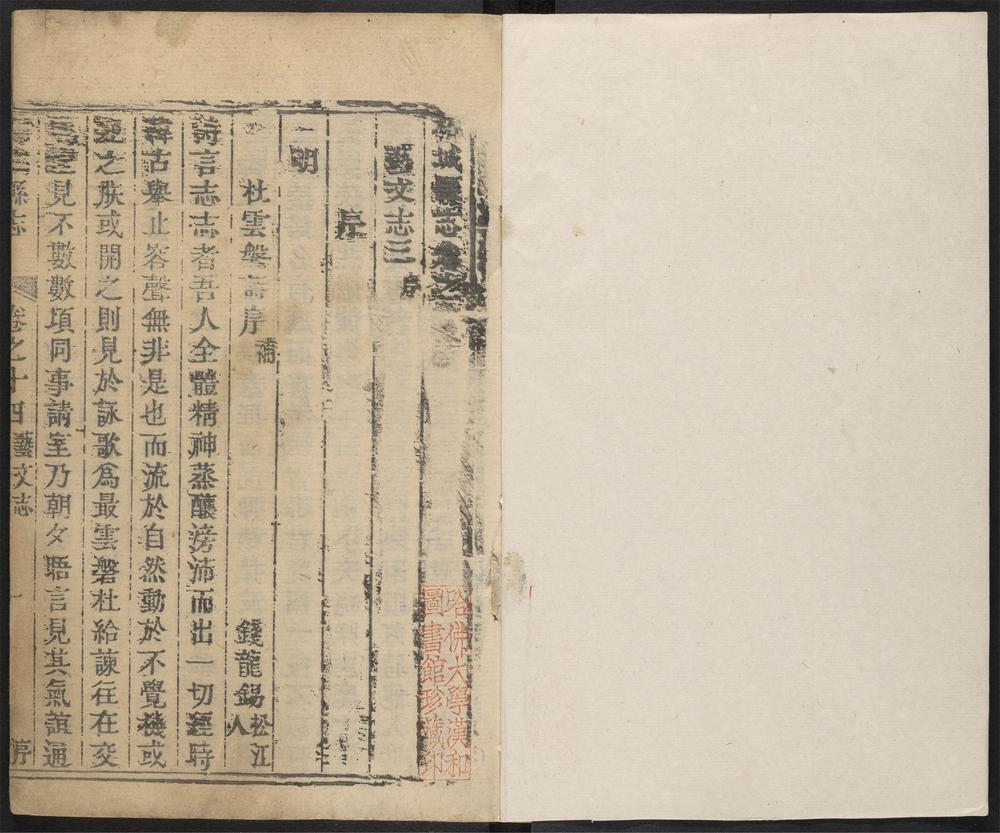 城縣志卷之
藝文志三 序
序
明
杜雲磐詩序 補 錢龍錫 松江人
詩言志志者吾人全體精神蒸釀滂沛而出一切經時
古舉止容聲無非是也而流於自然動於不覺機或
之朕或開之則見於詠歌為最雲磐杜給諫在在交
見不數數項同事請室乃朝夕晤言見其氣誼通
縣志 卷之十四 藝文志 一 序
哈佛大學漢和
圖書館珍藏印